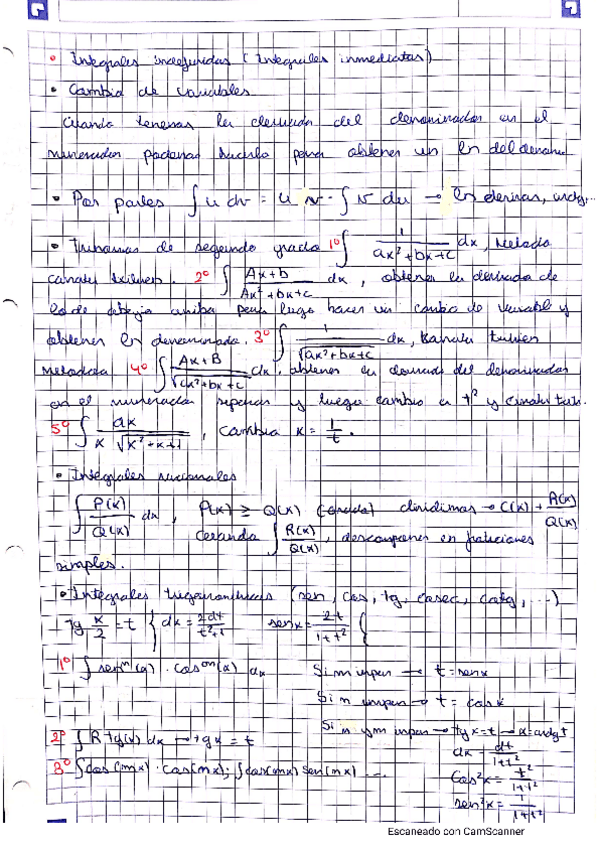 • Integrales indefinidas (Integrales inmediatas)
• Cambio de variables
Cuando tenemos la derivada del denominador en el
numerador podemos hacerlo para obtener un ln del denom.
• Por partes ∫ u dv = u v - ∫ v du →
• Trinomios de segundo grado 1º ∫ 1/(ax²+bx+c) dx, método
2º ∫ (Ax+b)/(Ax²+bx+c) dx, obtener la derivada de
lo de abajo arriba para luego hacer un cambio de variable y
obtener ln denominador. 3º ∫ 1/√(ax²+bx+c) dx,
4º ∫ (Ax+B)/√(ax²+bx+c) dx, obtener la derivada del denominador
en el numerador separar y luego cambio a t² y
5º ∫ dx/(x √(x²+x+1)), cambia x = 1/t.
• Integrales racionales
∫ P(x)/Q(x) dx, P(x) ≥ Q(x) (Grado) dividimos → C(x) + R(x)/Q(x)
∫ R(x)/Q(x), descomponer en fracciones
simples.
• Integrales trigonométricas (sen, cos, tg, cosec, cotg, ...)
Tg x/2 = t { dx = 2dt/t²+1 senx = 2t/1+t² {
1º ∫ senⁿ(x) · cosᵐ(x) dx Si m impar → t = senx
Si n impar → t = cosx
Si n y m impar → tg x = t → x = arctg t
2º ∫ R tg(x) dx → tg x = t dx = dt/1+t²
3º ∫ cos(mx) · cos(nx); ∫ cos(mx) sen(nx) ... Cos²x = t²/1+t²
sen²x = 1/1+t²
Escaneado con CamScanner